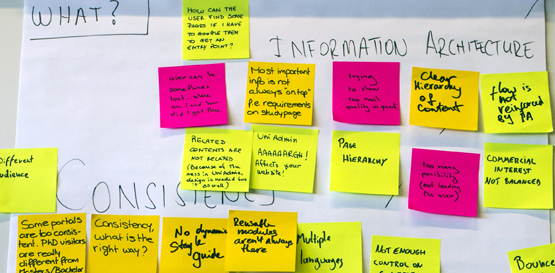 WHAT?
HOW CAN THE
USER FIND SOME
PAGES IF I HAVE
TO GOOGLE THEM
TO GET AN
ENTRY POINT?
INFORMATION ARCHITECTURE
user can be
something
lost
Most important
info is not
always "on top"
p.e requirements
on studypage
trying
to show
too much
Clear
Hierarchy
of Content
flow is
not
reinforced
by IA
RELATED
CONTENTS ARE
NOT RELATED
(because of the
mess in UniAdmin,
design is needed
overall)
Uni Admin
AAAAAARGH!
Affects your
website!
PAGE
HIERARCHY
too many
(not leading
the user)
COMMERCIAL
INTEREST
NOT BALANCED
Different
audience
CONSISTENCY
Some portals
are too consis-
tent. PhD visitors
are really
different from
Masters/Bachelor
Consistency,
what is the
right way?
No dynamic
style
guide
Reusable
modules
aren't always
there
Multiple
languages
NOT ENOUGH
CONTROL ON
Bounce